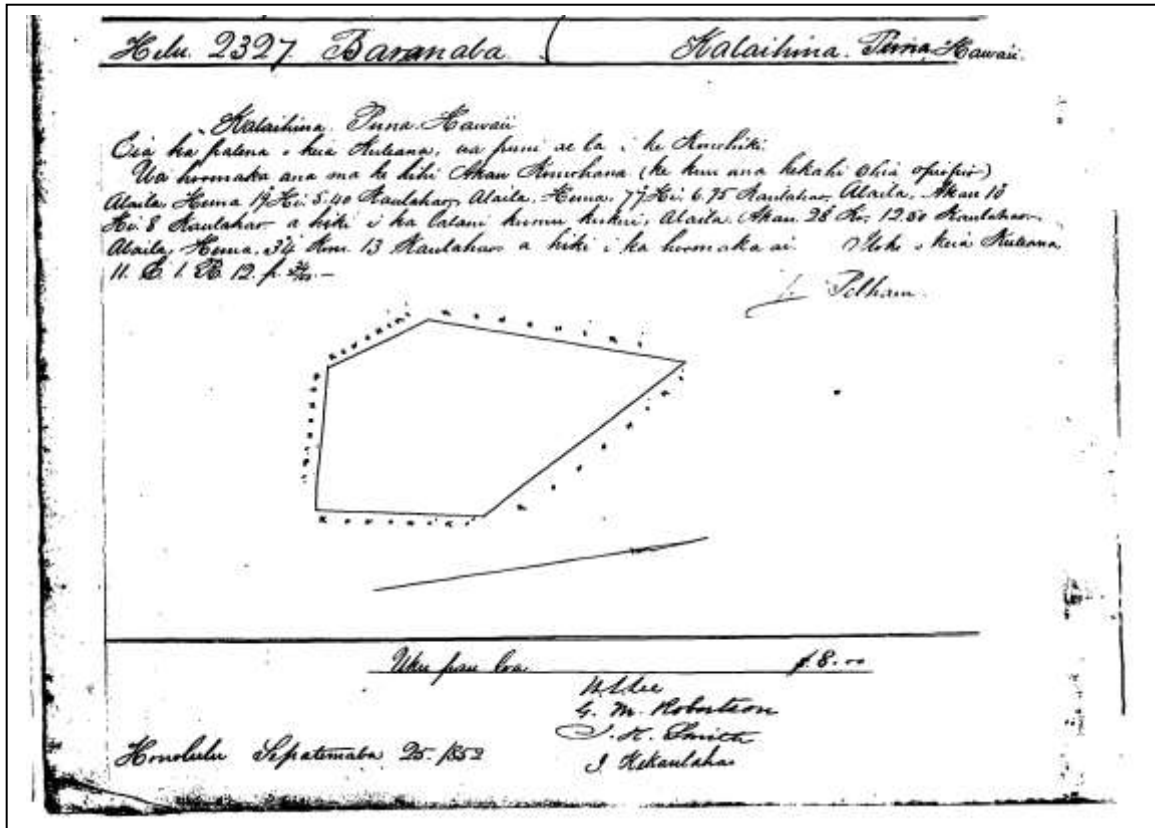 Helu. 2327. Baranaba. Kalaihina. Puna, Hawaii.
Kalaihina. Puna. Hawaii
Eia ka palena o keia Kuleana, ua puni ae la i ke Konohiki.
Ua hoomaka ana ma ke kihi Akau Komohana (ke kuu ana kekahi Ohia opiopio)
Alaila, Hema 19 Hi. 5.40 Kaulahao, Alaila, Hema, 77 Hi. 6.75 Kaulahao, Alaila, Akau 10
Hi. 8 Kaulahao a hiki i ka lalani kumu kukui, Alaila, Akau 28 Ko. 12.50 Kaulahao
Alaila, Hema, 34 Kom. 13 Kaulahao a hiki i ka hoomaka ai. Iloko o keia Kuleana
11. E. 1. R. 12. p.
J. Pelham.
Konohiki
Konohiki
Konohiki
Konohiki
Uku pau loa $8.00
W. L. Lee
G. M. Robertson
J. H. Smith
Honolulu Sepatemaba 25. 1852
J. Kekaulahao